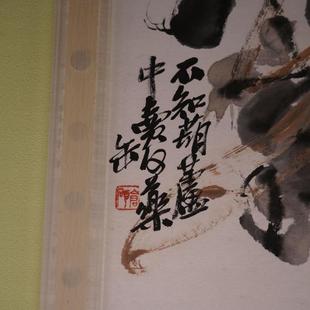 不知葫蘆
中賣何藥
缶